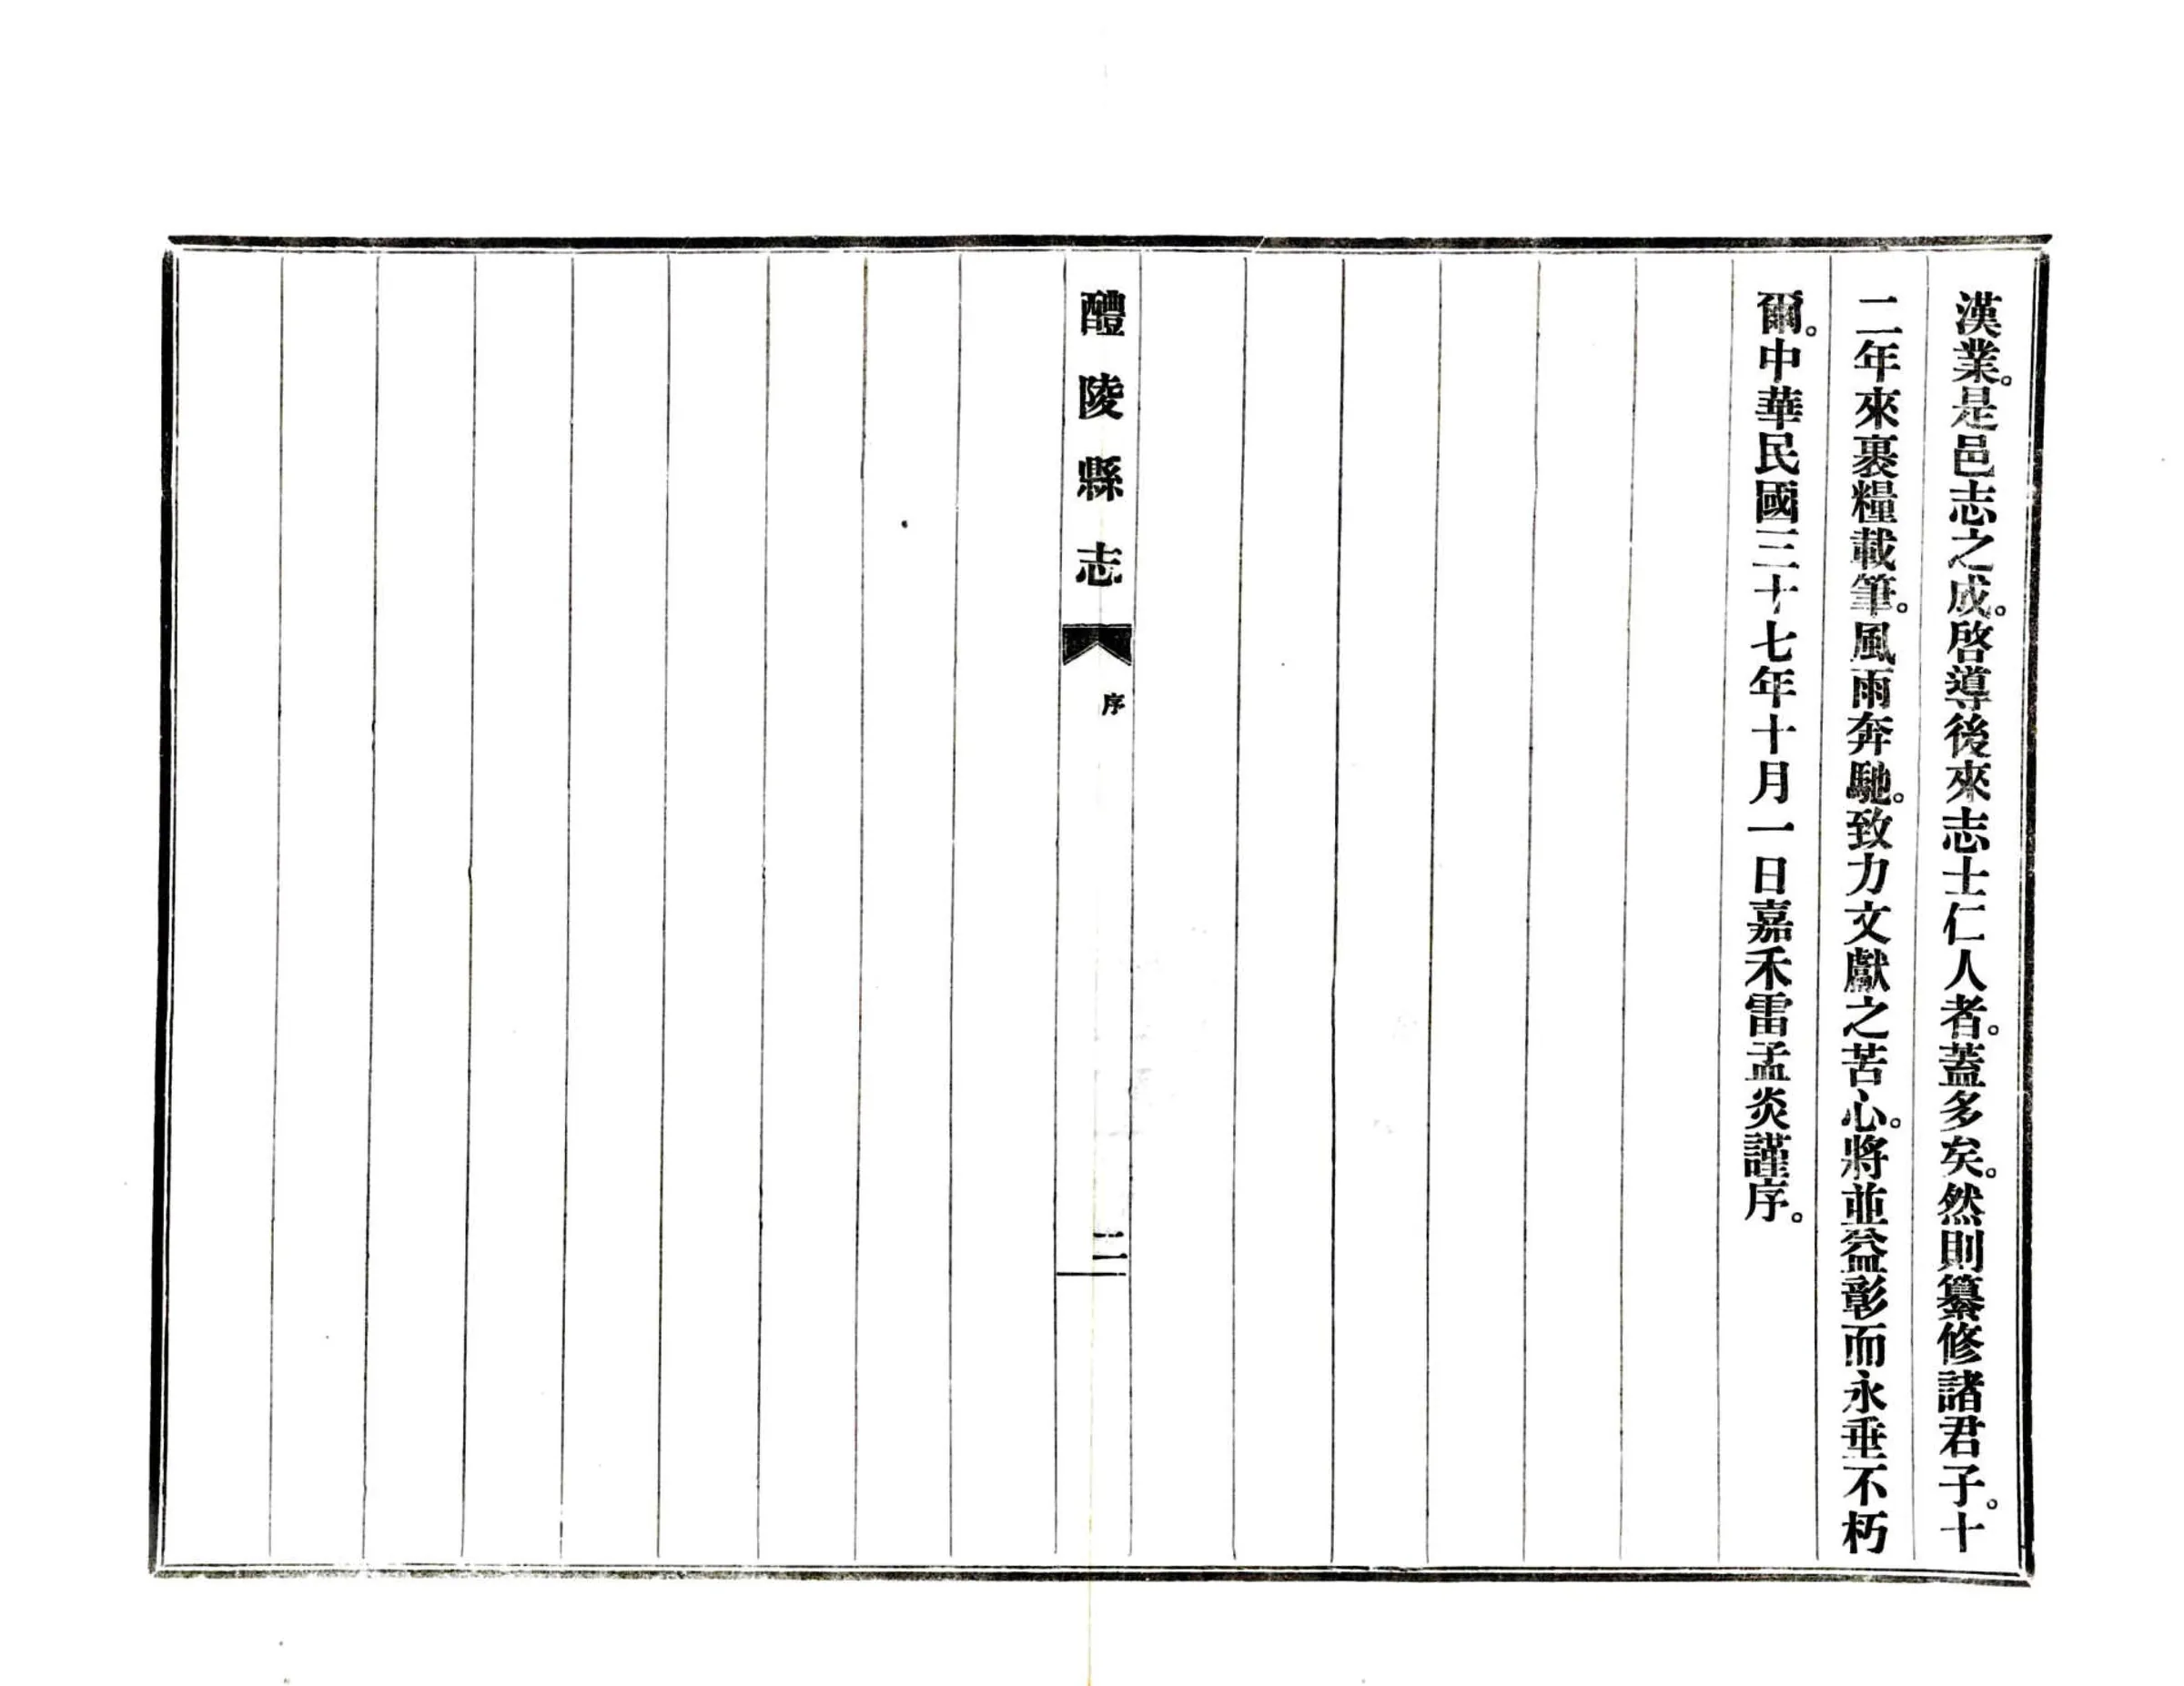 漢業。是邑志之成。啓導後來志士仁人者。蓋多矣。然則纂修諸君子。十
二年來裹糧載筆。風雨奔馳。致力文獻之苦心。將並益彰而永垂不朽
爾。中華民國三十七年十月一日嘉禾雷孟炎謹序。
醴陵縣志
序
二